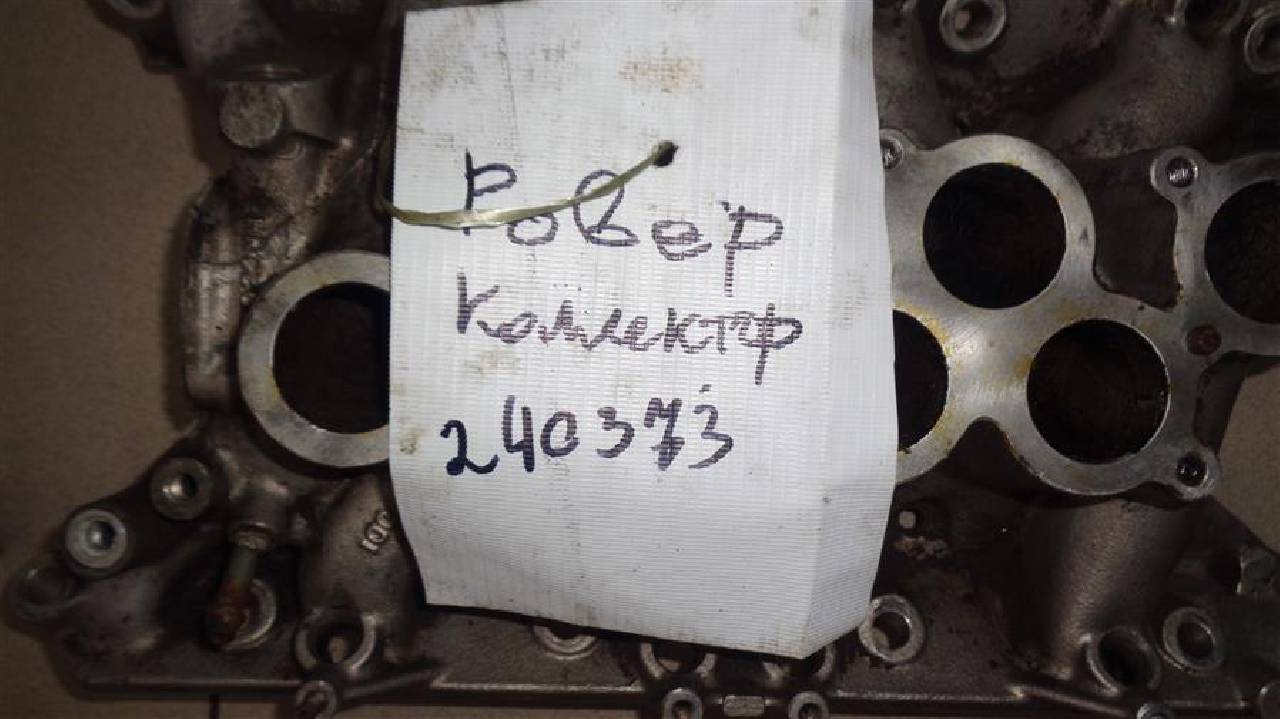 Ровер
Коллектр
240373